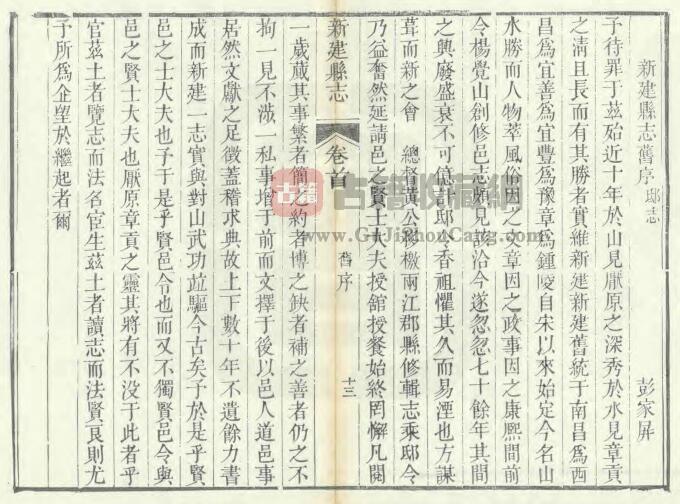 新建縣志舊序 邸志 彭家屏
予待罪于茲殆近十年於山見厭原之深秀於水見章貢
之淸且長而有其勝者實維新建新建舊統于南昌爲西
昌爲宜善爲宜豐爲豫章爲鍾陵自宋以來始定今名山
水勝而人物萃風俗因之文章因之政事因之康熙間前
令楊覺山創修邑志頗見該洽今遂忽忽七十餘年其間
之興廢盛衰不可億計邸令香祖懼其久而易湮也方謀
葺而新之會 總督黃公移檄兩江郡縣修輯志乘邸令
乃益奮然延請邑之賢士大夫授舘授餐始終罔懈凡閱
新建縣志 卷首 舊序 十三
一歲蕆其事繁者簡之約者博之缺者補之善者仍之不
拘一見不涉一私事增于前而文擇于後以邑人道邑事
居然文獻之足徵蓋稽求典故上下數十年不遺餘力書
成而新建一志實與對山武功竝驅今古矣予於是乎賢
邑之士大夫也予于是乎賢邑令也而又不獨賢邑令與
邑之賢士大夫也厭原章貢之靈其將有不没于此者乎
官茲土者覽志而法名宦生茲土者讀志而法賢良則尤
予所爲企望於繼起者爾
古籍 古籍收藏网
www.GuJiShouCang.com